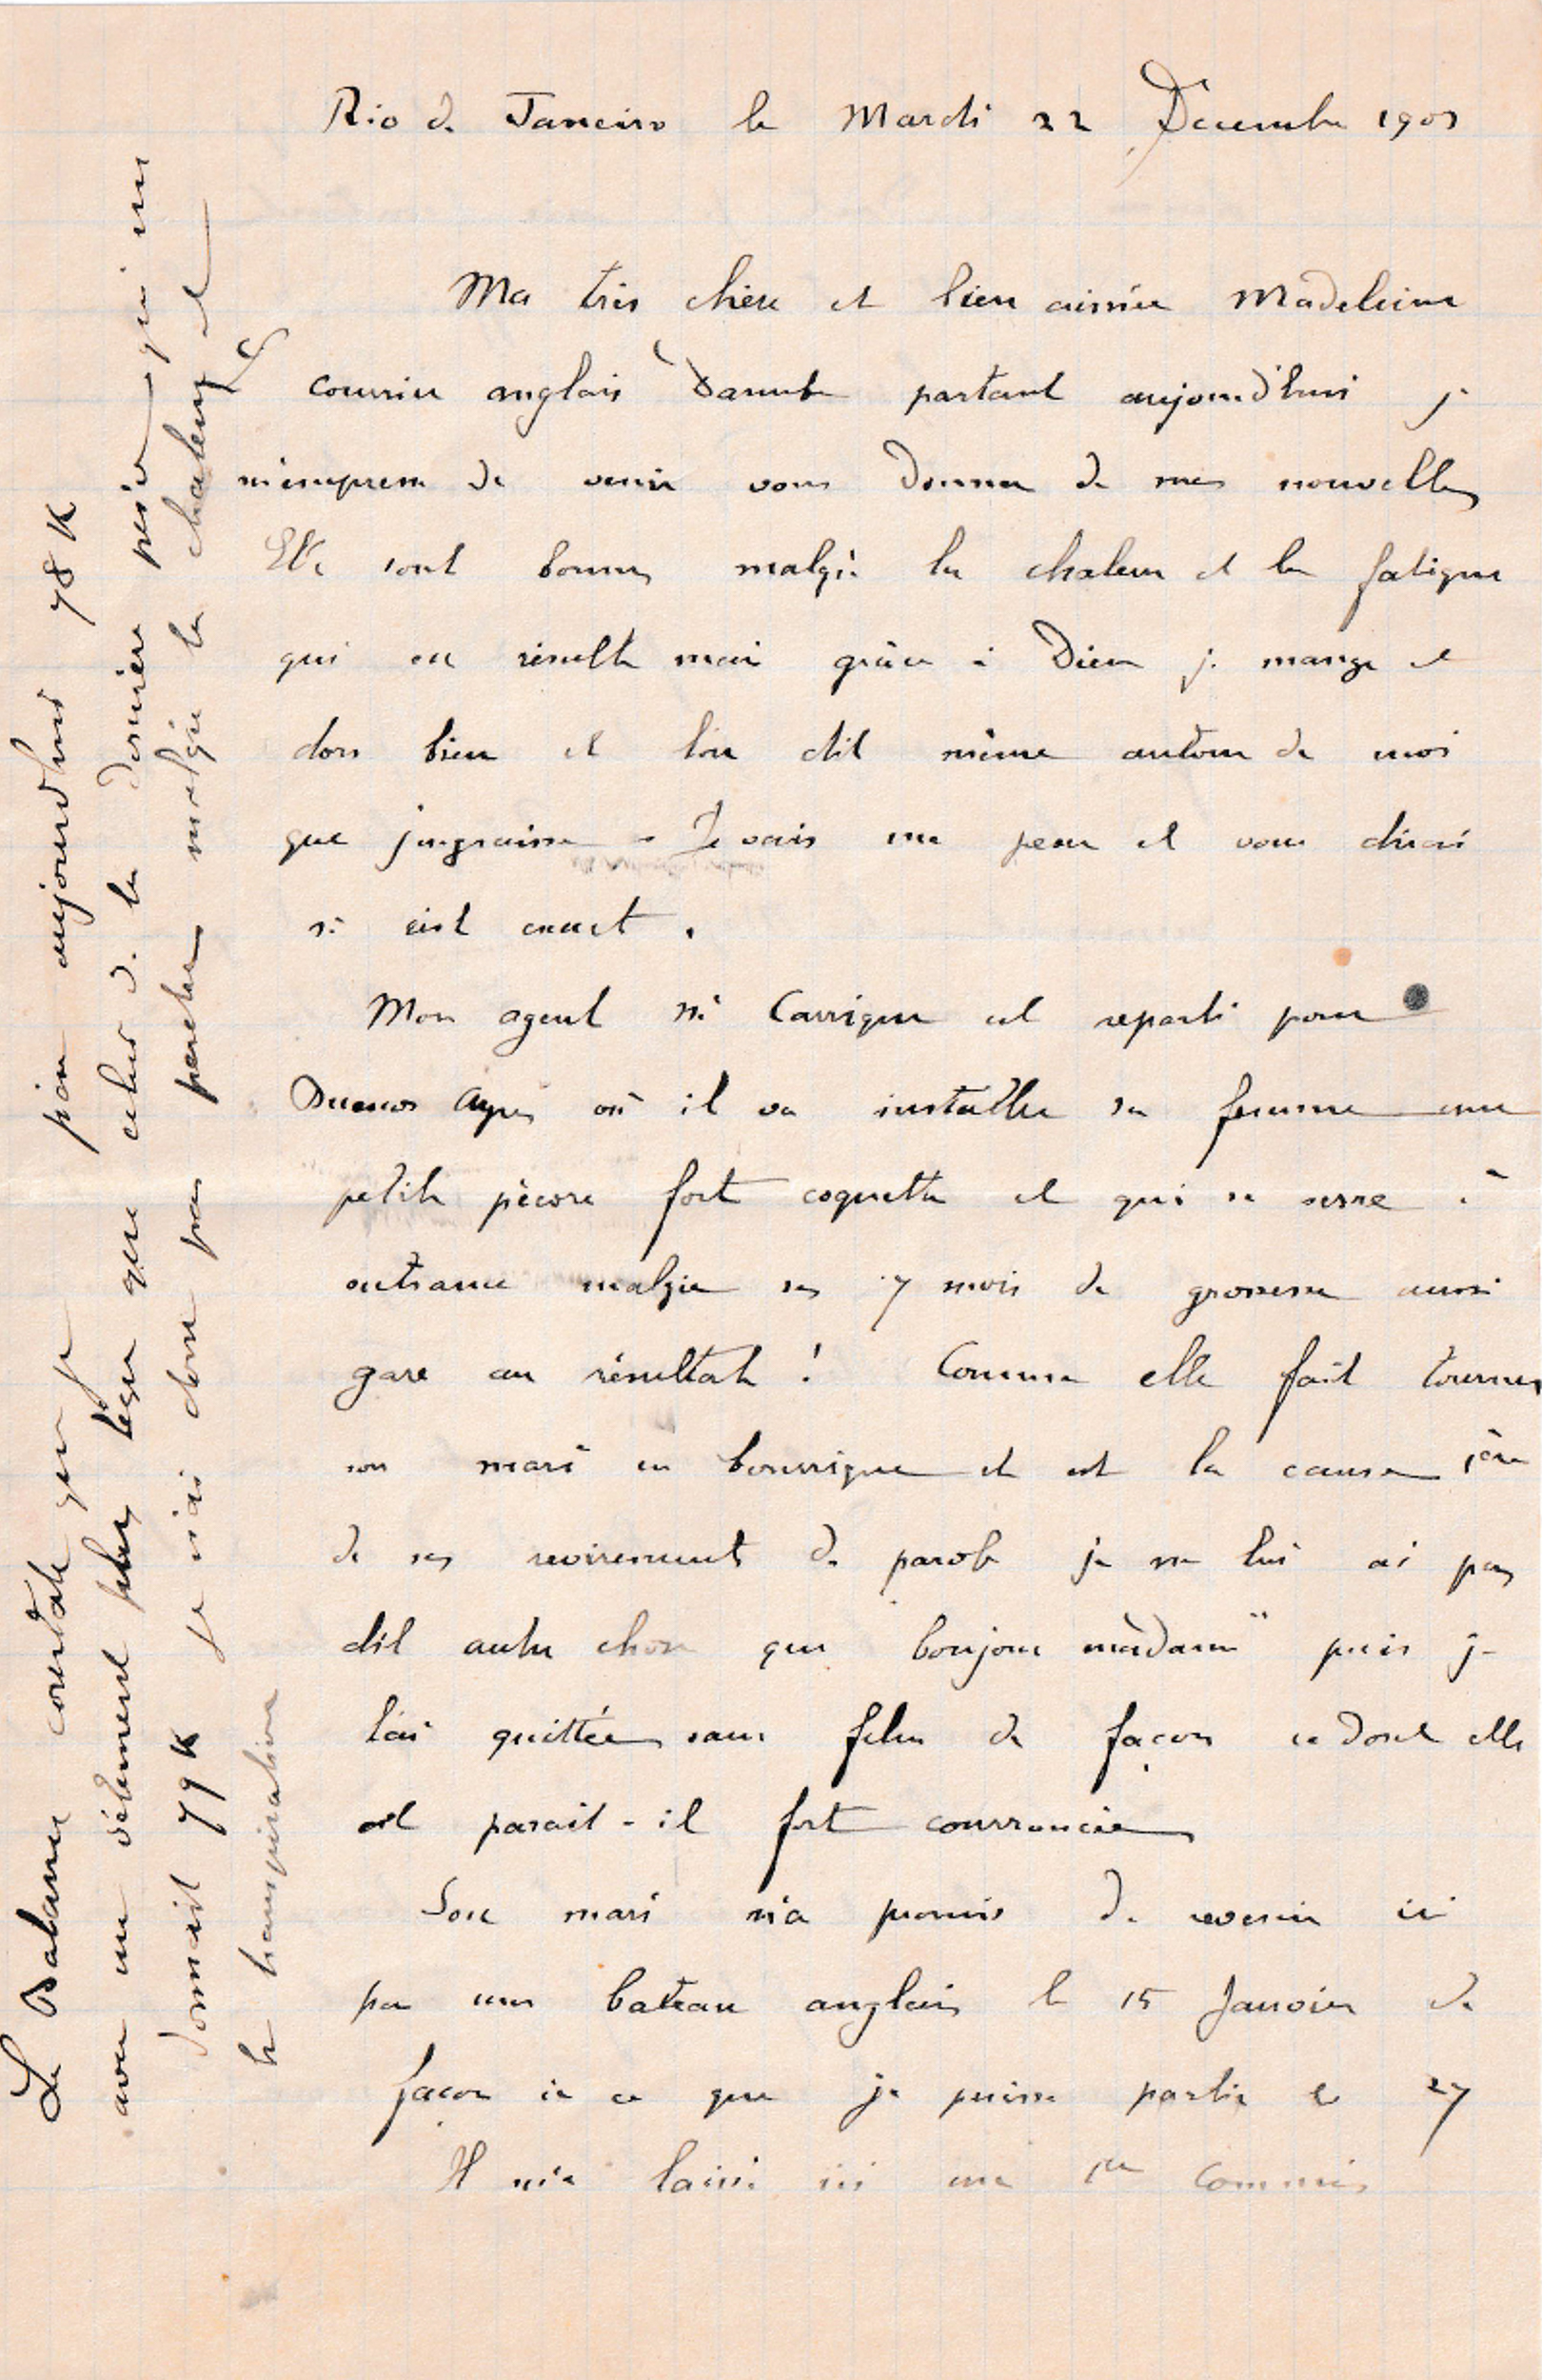 Rio de Janeiro le Mardi 22 Décembre 1903
Ma très chère et bien aimée Madeleine
Le courrier anglais Danube partant aujourd'hui je
m'empresse de venir vous donner de mes nouvelles
Elles sont bonnes malgré la chaleur et la fatigue
qui en résulte mais grâce à Dieu je mange et
dors bien et l'on dit même autour de moi
que j'engraisse - Je vais me peser et vous dirai
si c'est exact.
Mon agent Mr Carrique est reparti pour
Buenos Ayres où il va installer sa femme une
petite pécore fort coquette et qui se serre à
outrance malgré ses 7 mois de grossesse aussi
gare au résultat ! Comme elle fait tourner
son mari en bourrique et est la cause 1ère
de ses revirements de parole je ne lui ai pas
dit autre chose que "bonjour madame" puis je
l'ai quittée sans plus de façon ce dont elle
est parait-il fort courroucée
Son mari m'a promis de revenir ici
par un bateau anglais le 15 Janvier de
façon à ce que je puisse partir le 27
Il m'a laissé ici un 1er Commis
La Balance constate que je pèse aujourd'hui 78 K
avec un vêtement plus léger que celui de la dernière pesée qui me
donnait 79 K je n'ai donc pas perdu malgré la chaleur et
la transpiration